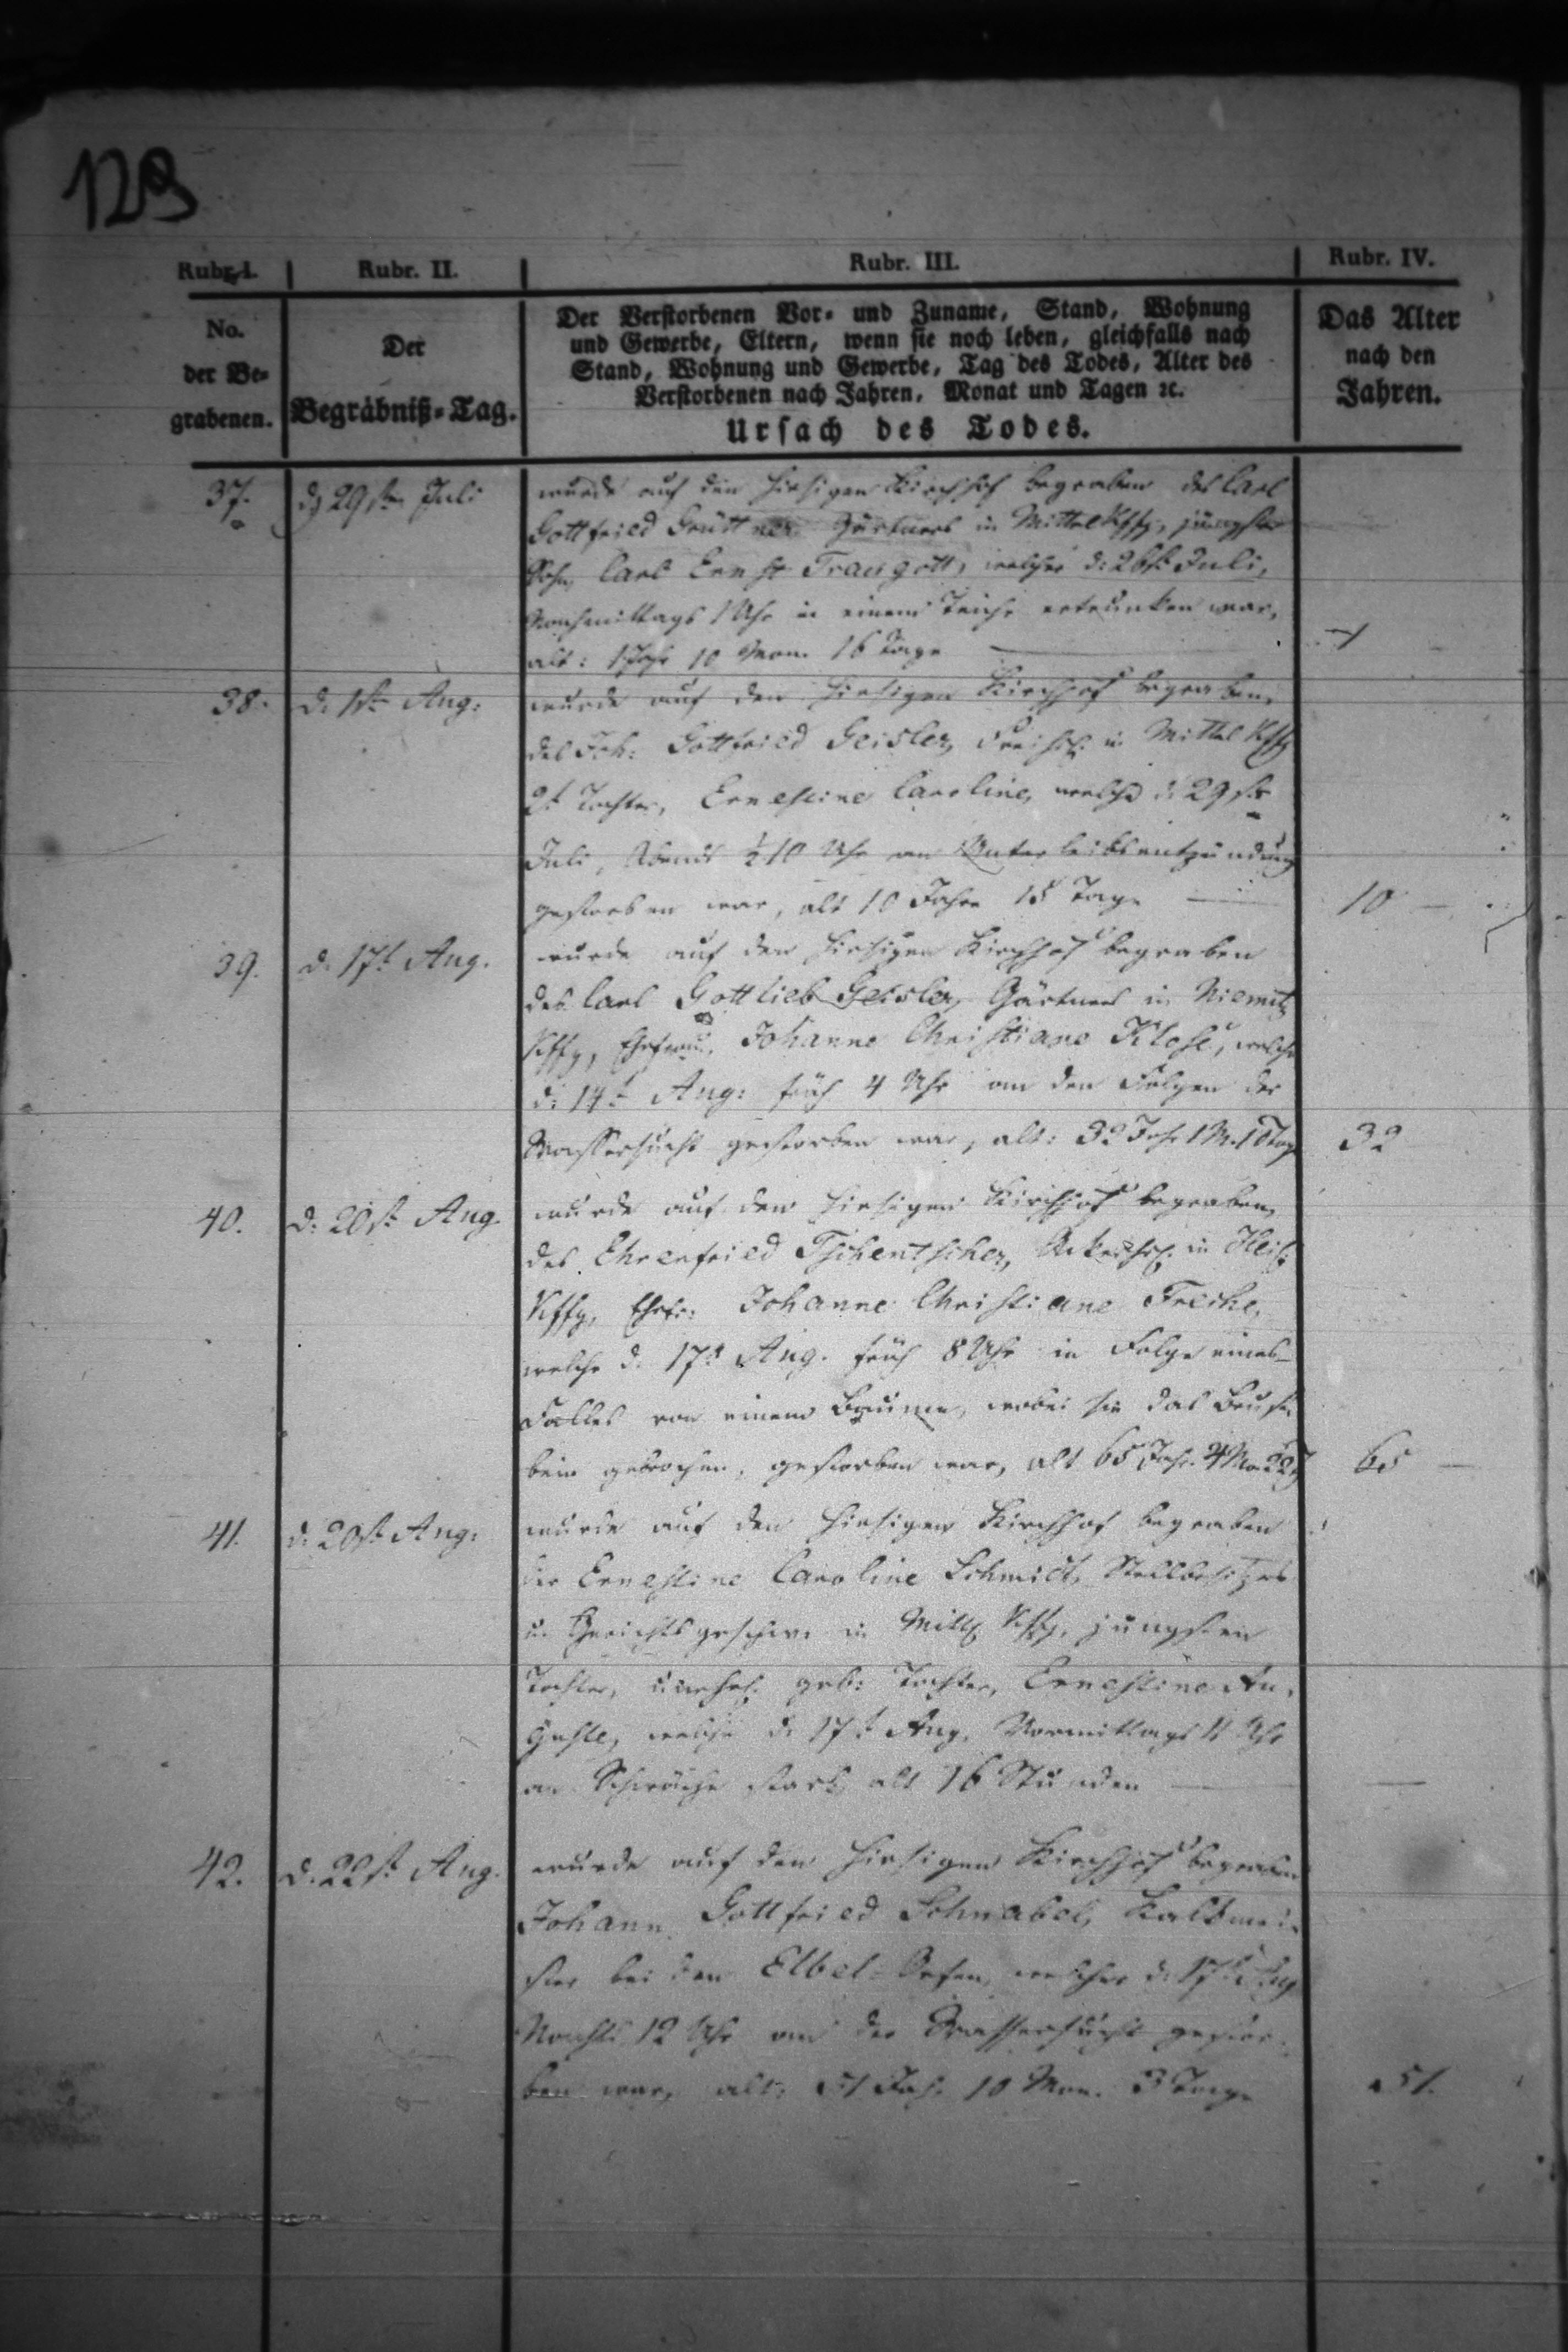 129
Rubr. I.
Rubr. II.
Rubr. III.
Rubr. IV.
No.
der Be-
grabenen.
Der
Begräbniß-Tag.
Der Verstorbenen Vor- und Zuname, Stand, Wohnung
und Gewerbe, Eltern, wenn sie noch leben, gleichfalls nach
Stand, Wohnung und Gewerbe, Tag des Todes, Alter des
Verstorbenen nach Jahren, Monat und Tagen ꝛc.
Ursach des Todes.
Das Alter
nach den
Jahren.
37.
d. 29st. Juli
wurde auf den hiesigen Kirchhof begraben des Carl
Gottfried Grüttner Gärtners in Mittel Kffg, jüngster
Sohn, Carl Ernst Traugott, welcher d: 26st. Juli,
Nachmittags 1 Uhr in einem Teiche ertrunken war,
alt: 1 Jahr 10 Mon. 16 Tage
1
38.
d. 1st. Aug:
wurde auf den hiesigen Kirchhof begraben,
des Joh: Gottfried Geisler, in Mittel Kffg
2t. Tochter, Ernestine Caroline, welche d: 29st.
Juli, Abends ½10 Uhr an Unterleibsentzündung
gestorben war, alt 10 Jahre 15 Tage
10
39.
d. 17t. Aug.
wurde auf den hiesigen Kirchhof begraben
des Carl Gottlieb Geisler, Gärtners in Niemitz
Kffg, Ehefrau, Johanne Christiane Klose, welche
d: 14t. Aug: früh 4 Uhr an den Folgen der
Wassersucht gestorben war, alt: 32 Jahr 1 M. 10 Tag
32
40.
d: 20st. Aug.
wurde auf den hiesigen Kirchhof begraben,
des Ehrenfried Tschentscher, in
Kffg, Ehefr: Johanne Christiane Freche,
welche d. 17t. Aug. früh 8 Uhr in Folge eines
Falles von einem Baume, wobei sie das Brust
bein gebrochen, gestorben war, alt 65 Jahr. 4 Mo 22 T
65
41.
d: 20st. Aug:
wurde auf den hiesigen Kirchhof begraben
der Ernestine Caroline Schmidt, Stellbesitzers
u. Gerichtsgeschw. in Mittl Kffg, jüngsten
Tochter, unehel. geb: Tochter, Ernestine Au,
guste, welche d. 17t. Aug. Vormittags 11 Uhr
an Schwäche starb, alt 16 Stunden
42.
d. 22st. Aug.
wurde auf den hiesigen Kirchhof begraben
Johann Gottfried Schnabel, Kalkmei-
ster bei den Elbel-Oefen, welcher d. 17t. Aug
Nachts 12 Uhr an der Wassersucht gestor-
ben war, alt: 51 Jah. 10 Mon. 3 Tage
51.